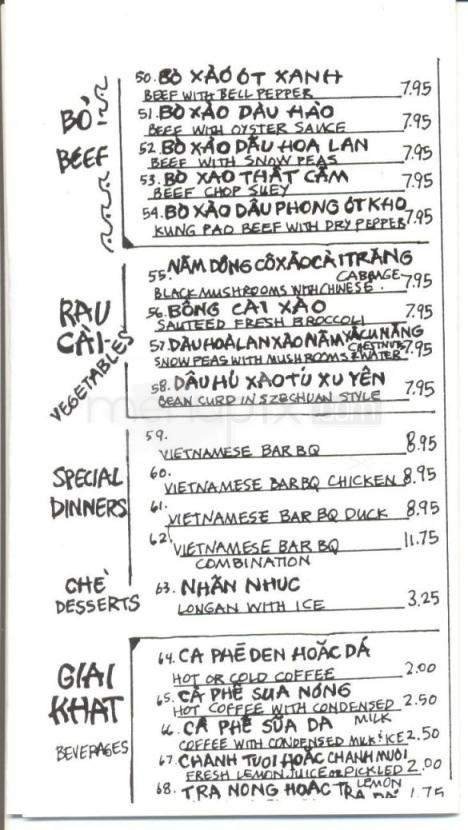 BÒ
BEEF
50. BÒ XÀO ÓT XANH
BEEF WITH BELL PEPPER 7.95
51. BÒ XÀO DÀU HÀO
BEEF WITH OYSTER SAUCE 7.95
52. BÒ XÀO DẦU HOA LAN
BEEF WITH SNOW PEAS 7.95
53. BÒ XAO THẤT CẨM
BEEF CHOP SUEY 7.95
54. BÒ XÀO DẦU PHONG ÓT KHO
KUNG PAO BEEF WITH DRY PEPPER 7.95
RAU
CÀI
VEGETABLES
55. NĂM DÔNG CÔ XÀO CÀI TRĂNG
BLACK MUSHROOMS WITH CHINESE CABBAGE 7.95
56. BÔNG CÀI XÀO
SAUTEED FRESH BROCCOLI 7.95
57. DÀU HOÀ LAN XÀO NẤM VÀ CU NĂNG
SNOW PEAS WITH MUSHROOMS & WATER CHESTNUTS 7.95
58. DÂU HỦ XÀO TỨ XUYÊN
BEAN CURD IN SZECHUAN STYLE 7.95
SPECIAL
DINNERS
59.
VIETNAMESE BAR BQ 8.95
60.
VIETNAMESE BAR BQ CHICKEN 8.95
61.
VIETNAMESE BAR BQ DUCK 8.95
62.
VIETNAMESE BAR BQ 11.75
COMBINATION
CHÈ
DESSERTS
63. NHÃN NHUC
LONGAN WITH ICE 3.25
GIAI
KHAT
BEVERAGES
64. CA PHÊ DEN HOẶC DÁ
HOT OR COLD COFFEE 2.00
65. CÀ PHÊ SUA NÓNG
HOT COFFEE WITH CONDENSED MILK 2.50
66. CÀ PHÊ SỮA DA
COFFEE WITH CONDENSED MILK & ICE 2.50
67. CHANH TUOI HOẶC CHANH MUÔI
FRESH LEMON JUICE OR PICKLED LEMON 2.00
68. TRÀ NONG HOẶC TRA 1.75